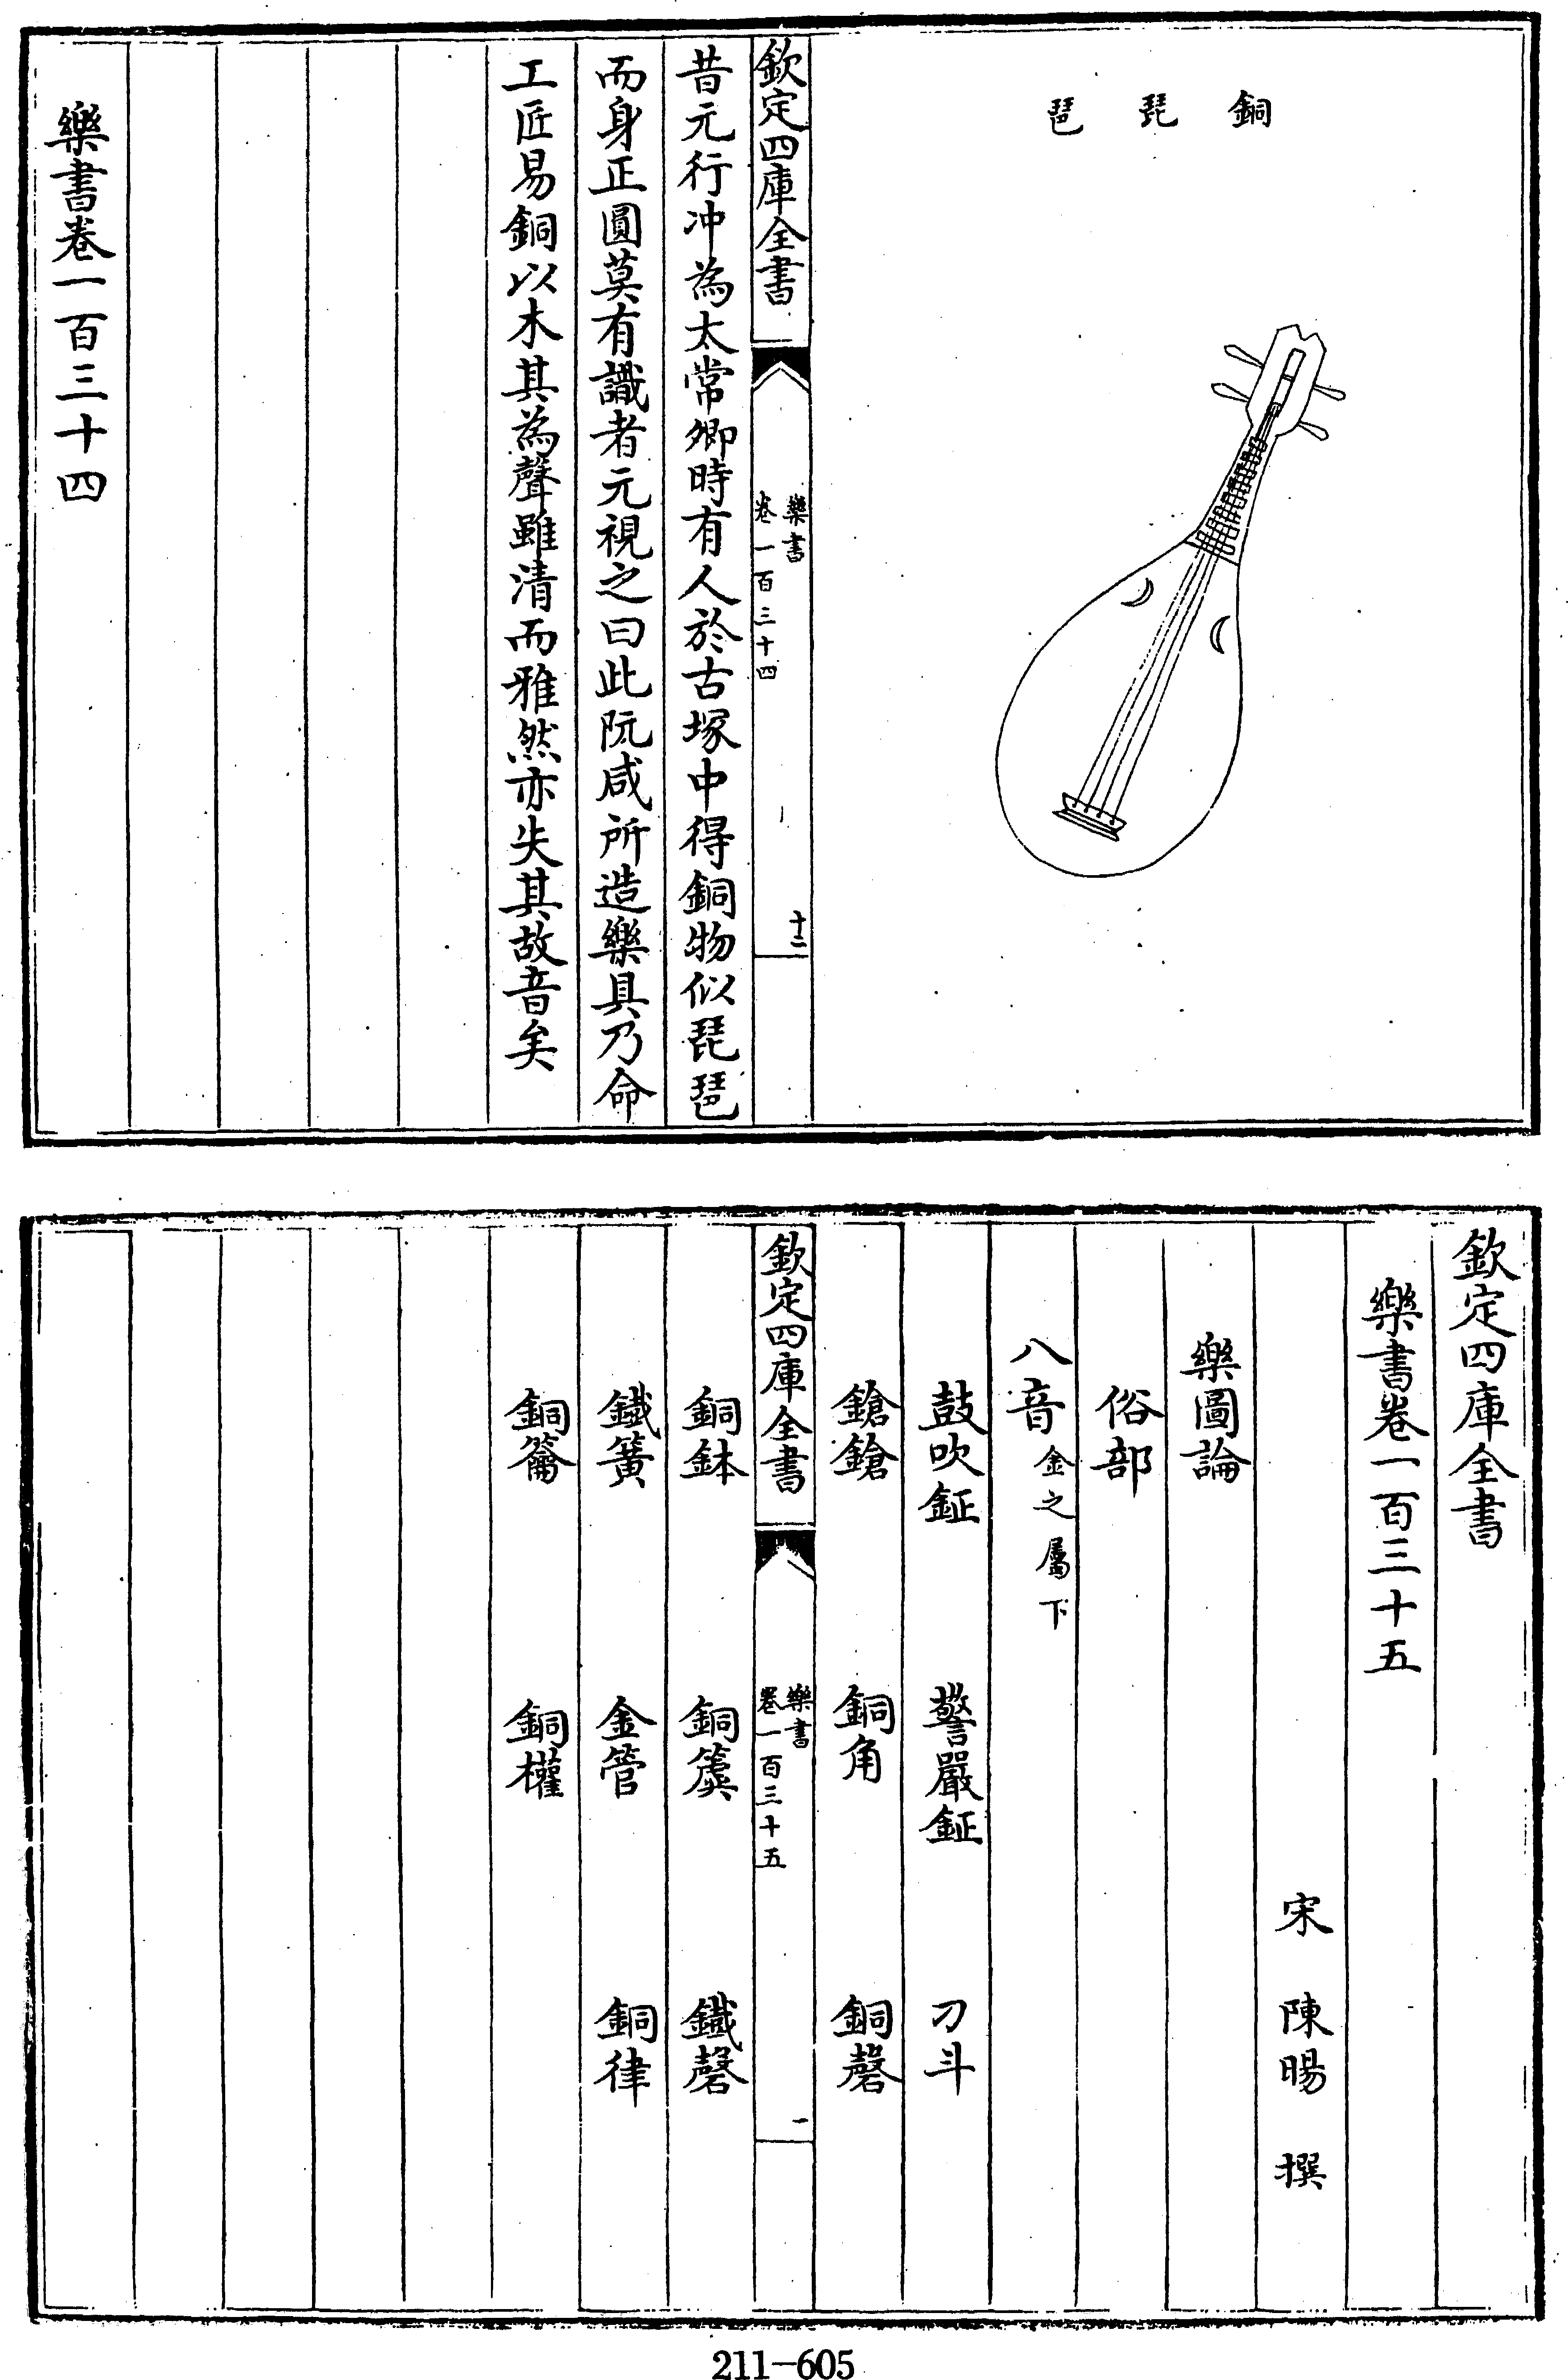 銅琵琶
欽定四庫全書
樂書
卷一百三十四
十二
昔元行冲為太常卿時有人於古塚中得銅物似琵琶
而身正圓莫有識者元視之曰此阮咸所造樂具乃命
工匠易銅以木其為聲雖清而雅然亦失其故音矣
樂書卷一百三十四
欽定四庫全書
樂書卷一百三十五
宋 陳暘 撰
樂圖論
俗部
八音 金之屬下
鼓吹鉦 警嚴鉦 刁斗
鎗鎗 銅角 銅磬
欽定四庫全書
樂書
卷一百三十五
一
銅鉢 銅簴 鐵磬
鐵簧 金管 銅律
銅籥 銅權
211-605